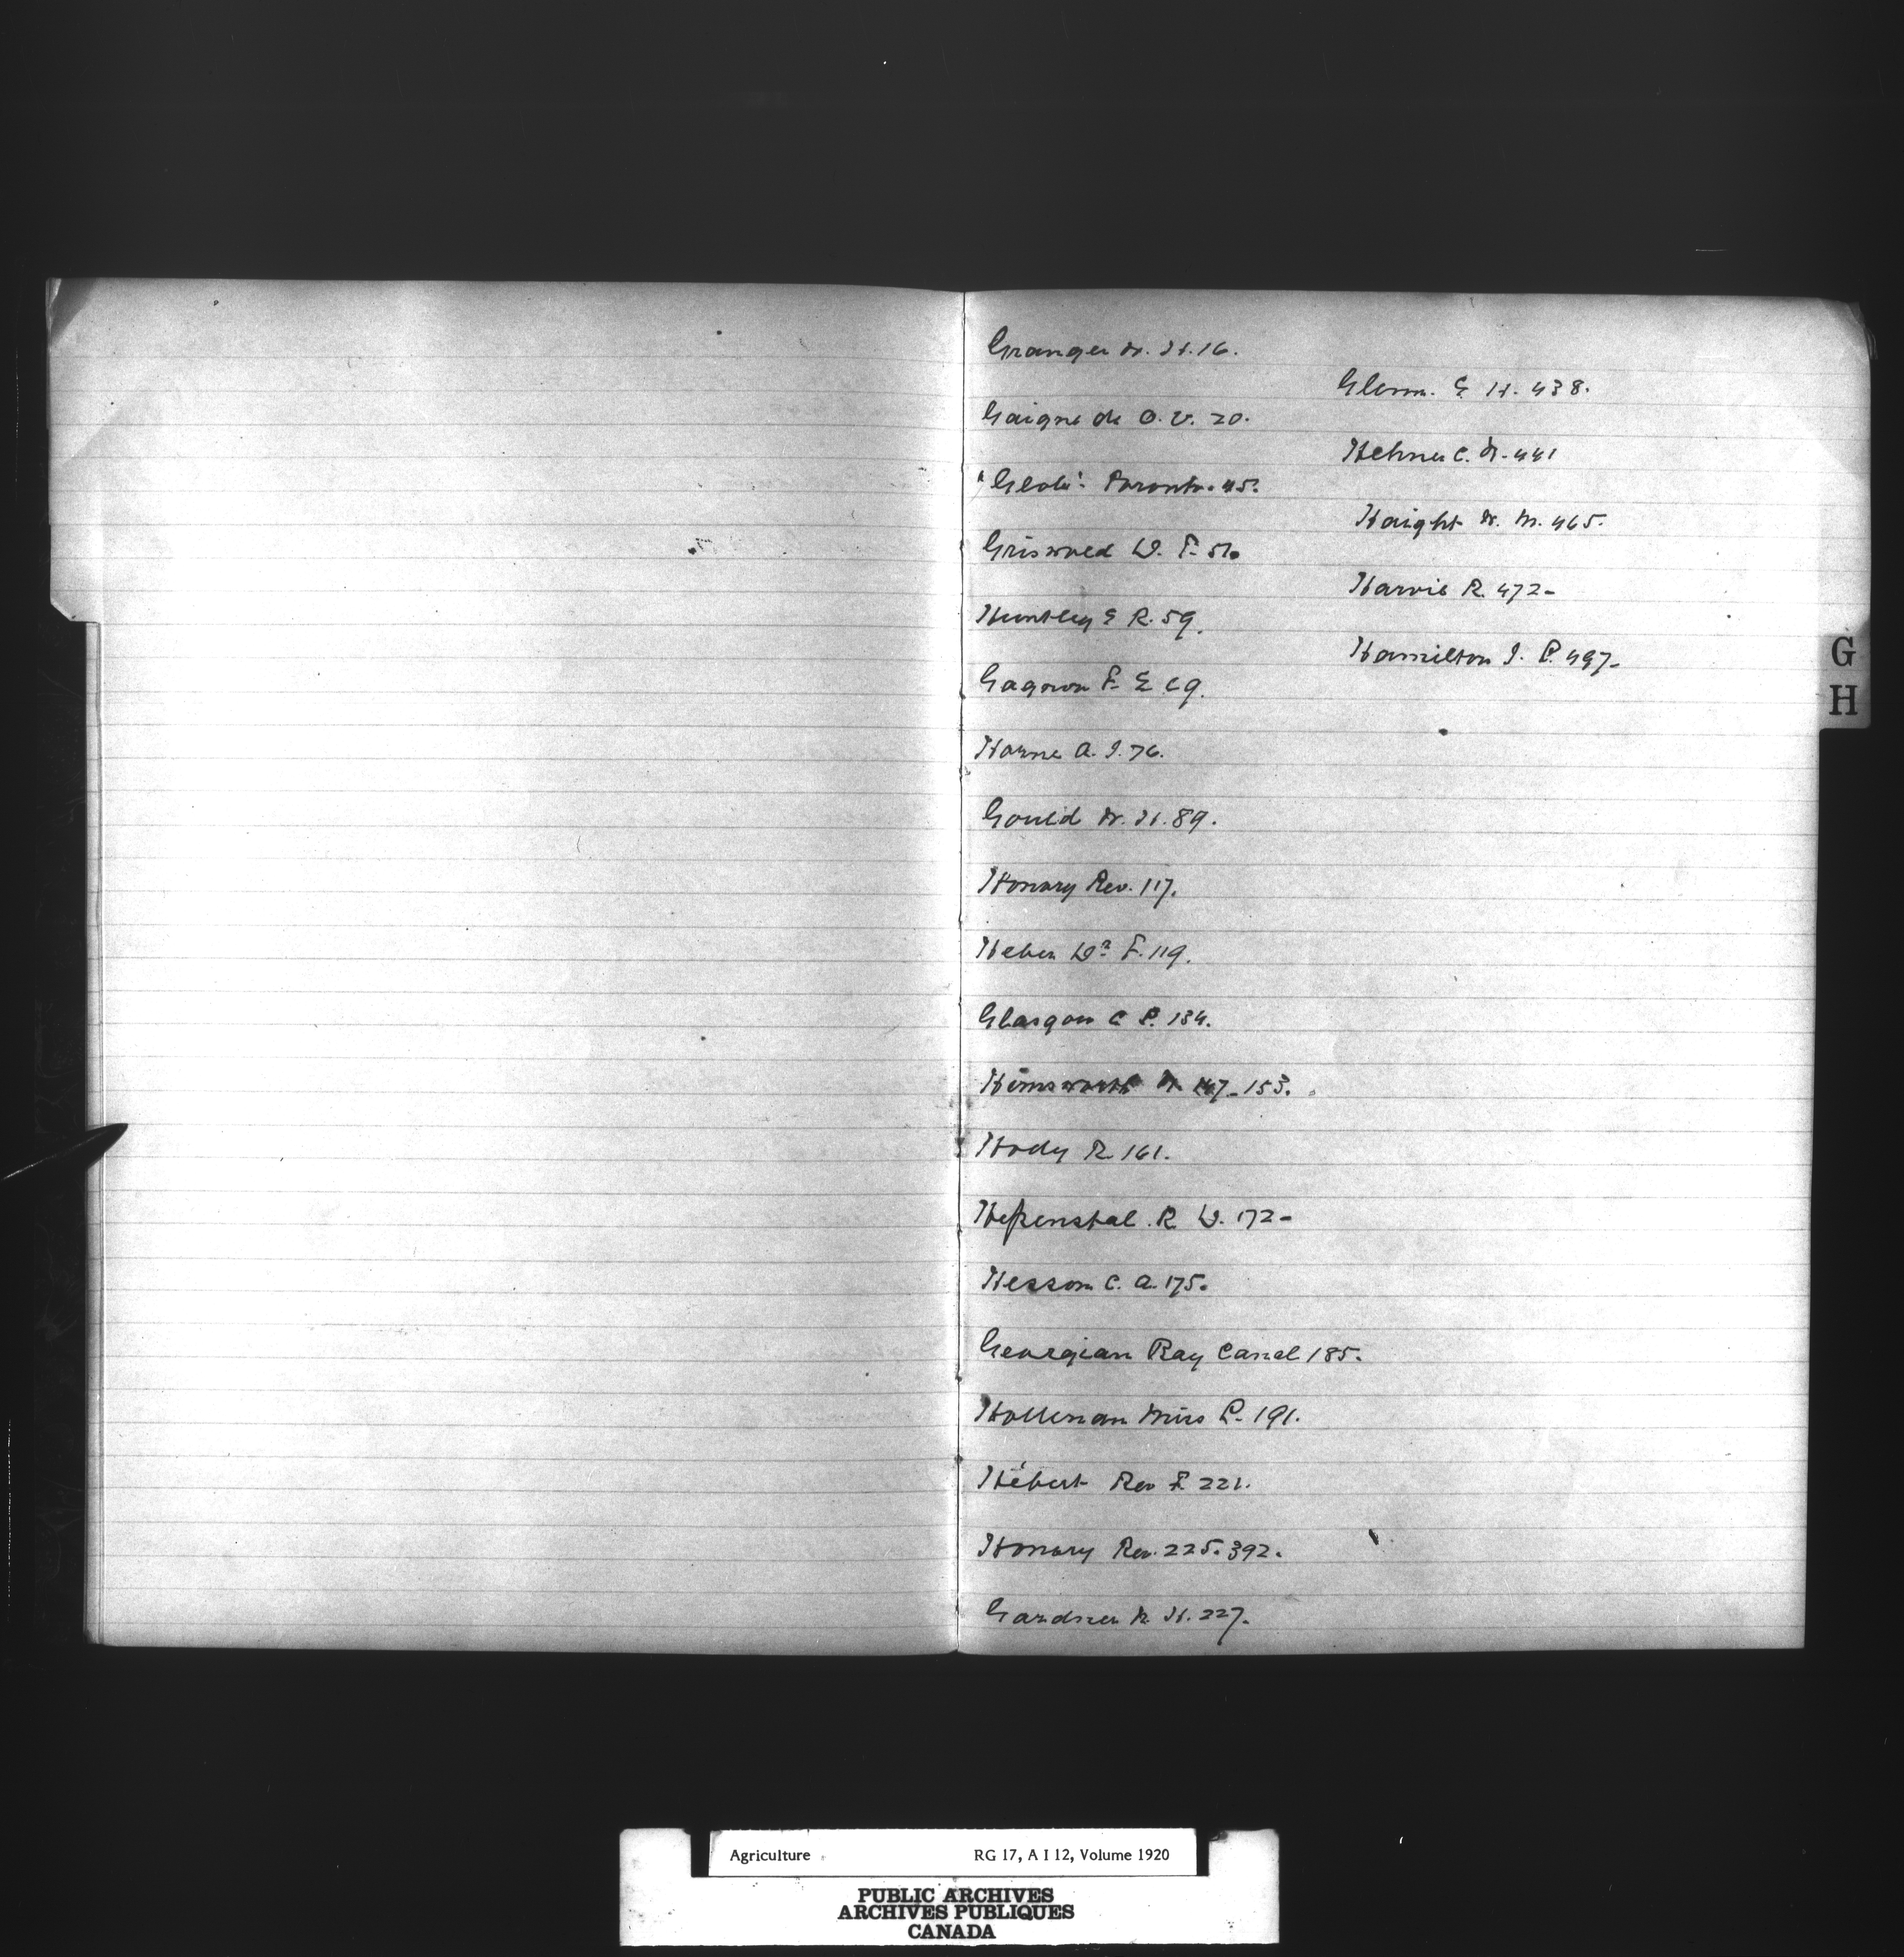 Granger W. H. 16.
Gaigne de O. V. 20.
"Globe" Toronto. 45.
Griswold D. F. 51.
Huntley E R. 59.
Gagnon F. E. 69.
Horne A. J. 76.
Gould W. H. 89.
Honory Rev. 117.
Heber Dr F. 119.
Glasgow C P. 134.
Himsworth W. 147_153.
Hody R. 161.
Hepenstal. R D. 172-
Hesson C. A. 175.
Georgian Bay Canal 185.
Holleman Miss P. 191.
Hébert Rev F. 221.
Honory Rev. 225. 392.
Gardner W. H. 227.
Glenn. E H. 438.
Hehner C. N. 441
Haight W. M. 465.
Harvie R. 472-
Hamilton J. P. 497-
G
H
Agriculture RG 17, A I 12, Volume 1920
PUBLIC ARCHIVES
ARCHIVES PUBLIQUES
CANADA